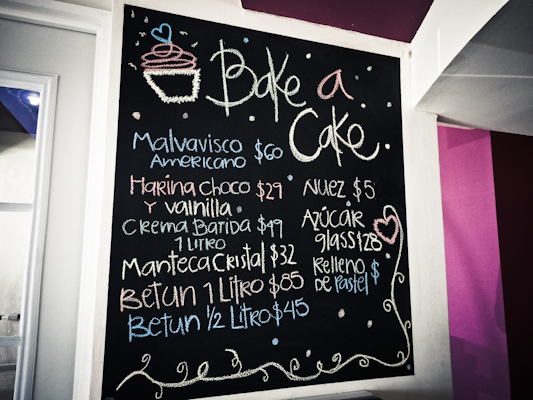 Bake a
Cake
Malvavisco
Americano $60
Harina choco $29
y vainilla
Crema Batida $49
1 Litro
Manteca Cristal $32
Betun 1 Litro $85
Betun 1/2 Litro $45
Nuez $5
Azúcar
glass $28
Relleno $
de Pastel